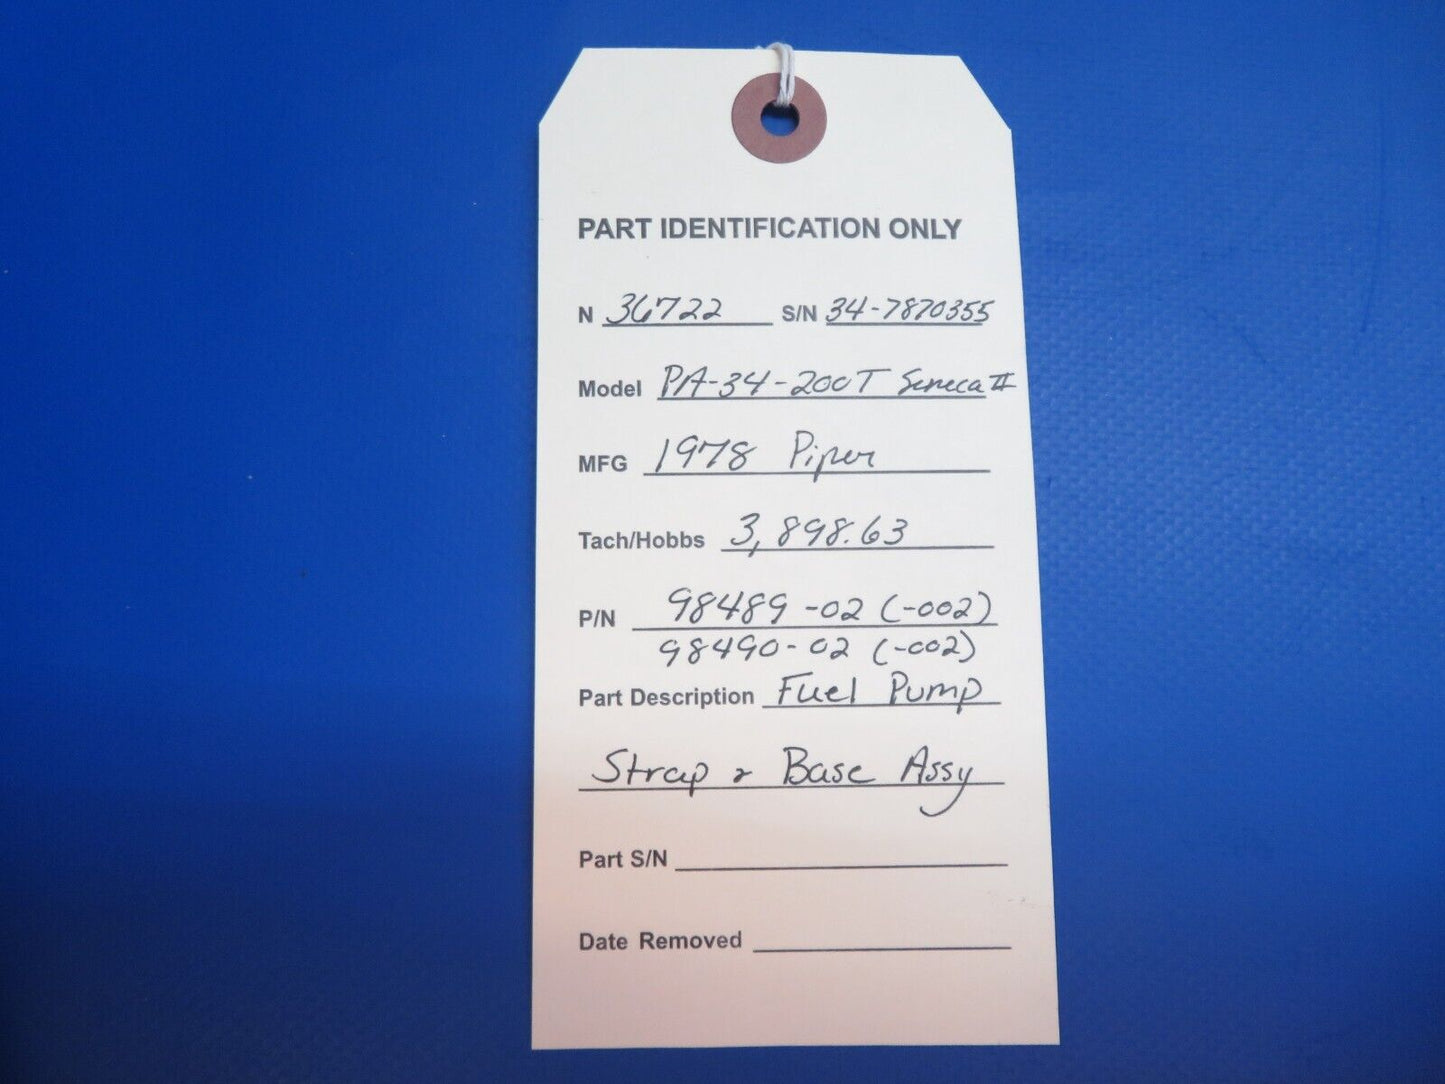 PART IDENTIFICATION ONLY
N 36722 S/N 34-7870355
Model PA-34-200T Seneca II
MFG 1978 Piper
Tach/Hobbs 3,898.63
P/N 98489-02 (-002)
98490-02 (-002)
Part Description Fuel Pump
Strap & Base Assy
Part S/N
Date Removed